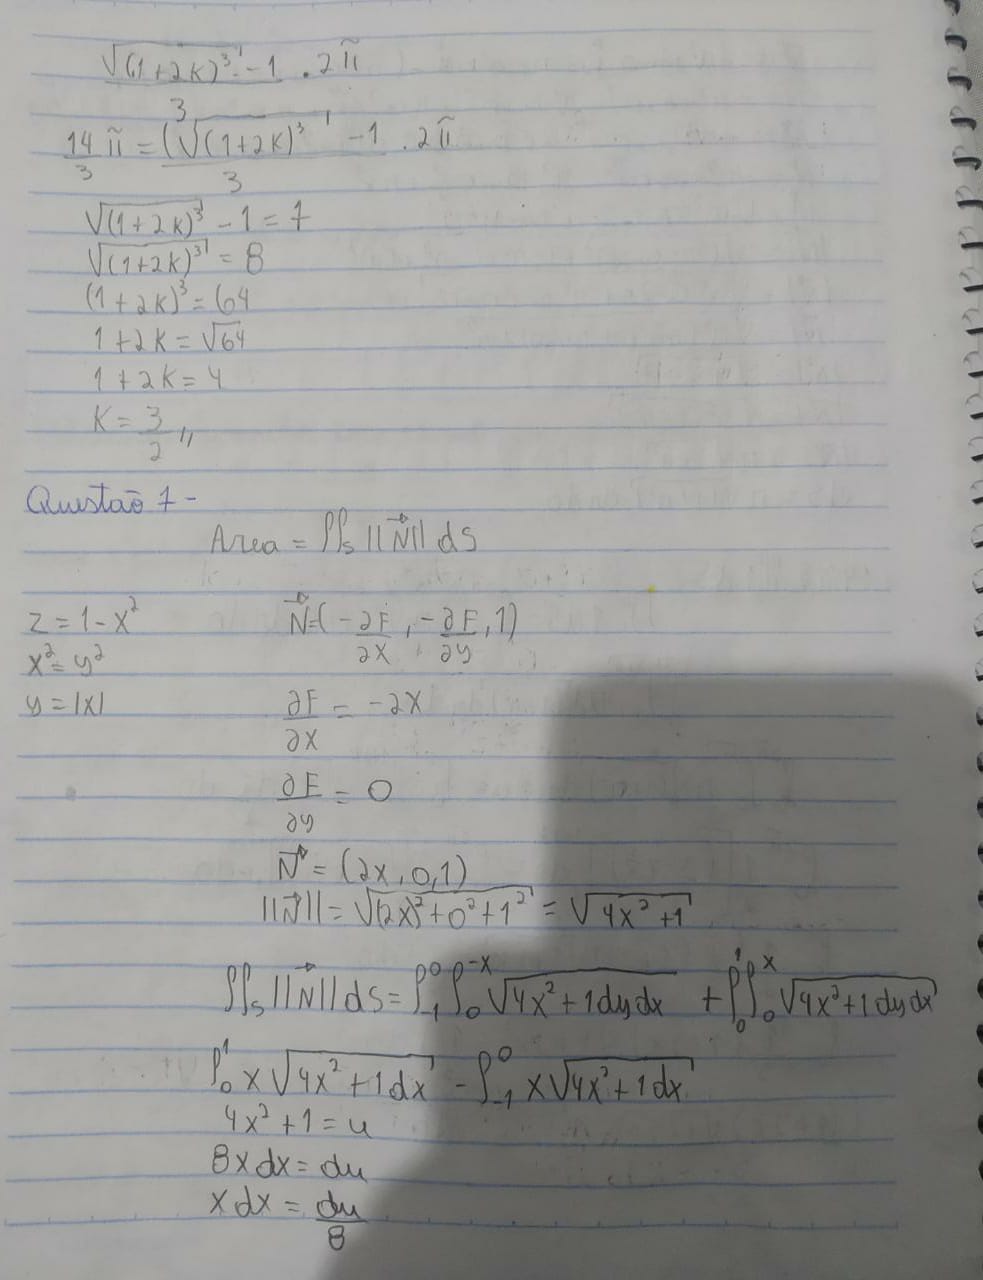 √(1+2K)³ - 1 . 2π
3
14/3 π = (√(1+2K)³ - 1 . 2π
3
√(1+2K)³ - 1 = 7
√(1+2K)³ = 8
(1+2K)³ = 64
1+2K = √64
1+2K = 4
K = 3/2 //
Questão 7 -
Area = ∫∫s ||N⃗|| ds
z = 1 - x² N⃗=( -∂F/∂x , -∂F/∂y , 1)
x² = y²
y = |x| ∂F/∂x = -2x
∂F/∂y = 0
N⃗ = (2x, 0, 1)
||N⃗|| = √(2x)²+0²+1² = √4x²+1
∫∫s ||N⃗|| ds = ∫₋₁⁰ ∫₀⁻ˣ √4x²+1 dy dx + ∫₀¹ ∫₀ˣ √4x²+1 dy dx
∫₀¹ x √4x²+1 dx - ∫₋₁⁰ x √4x²+1 dx
4x²+1 = u
8x dx = du
x dx = du/8